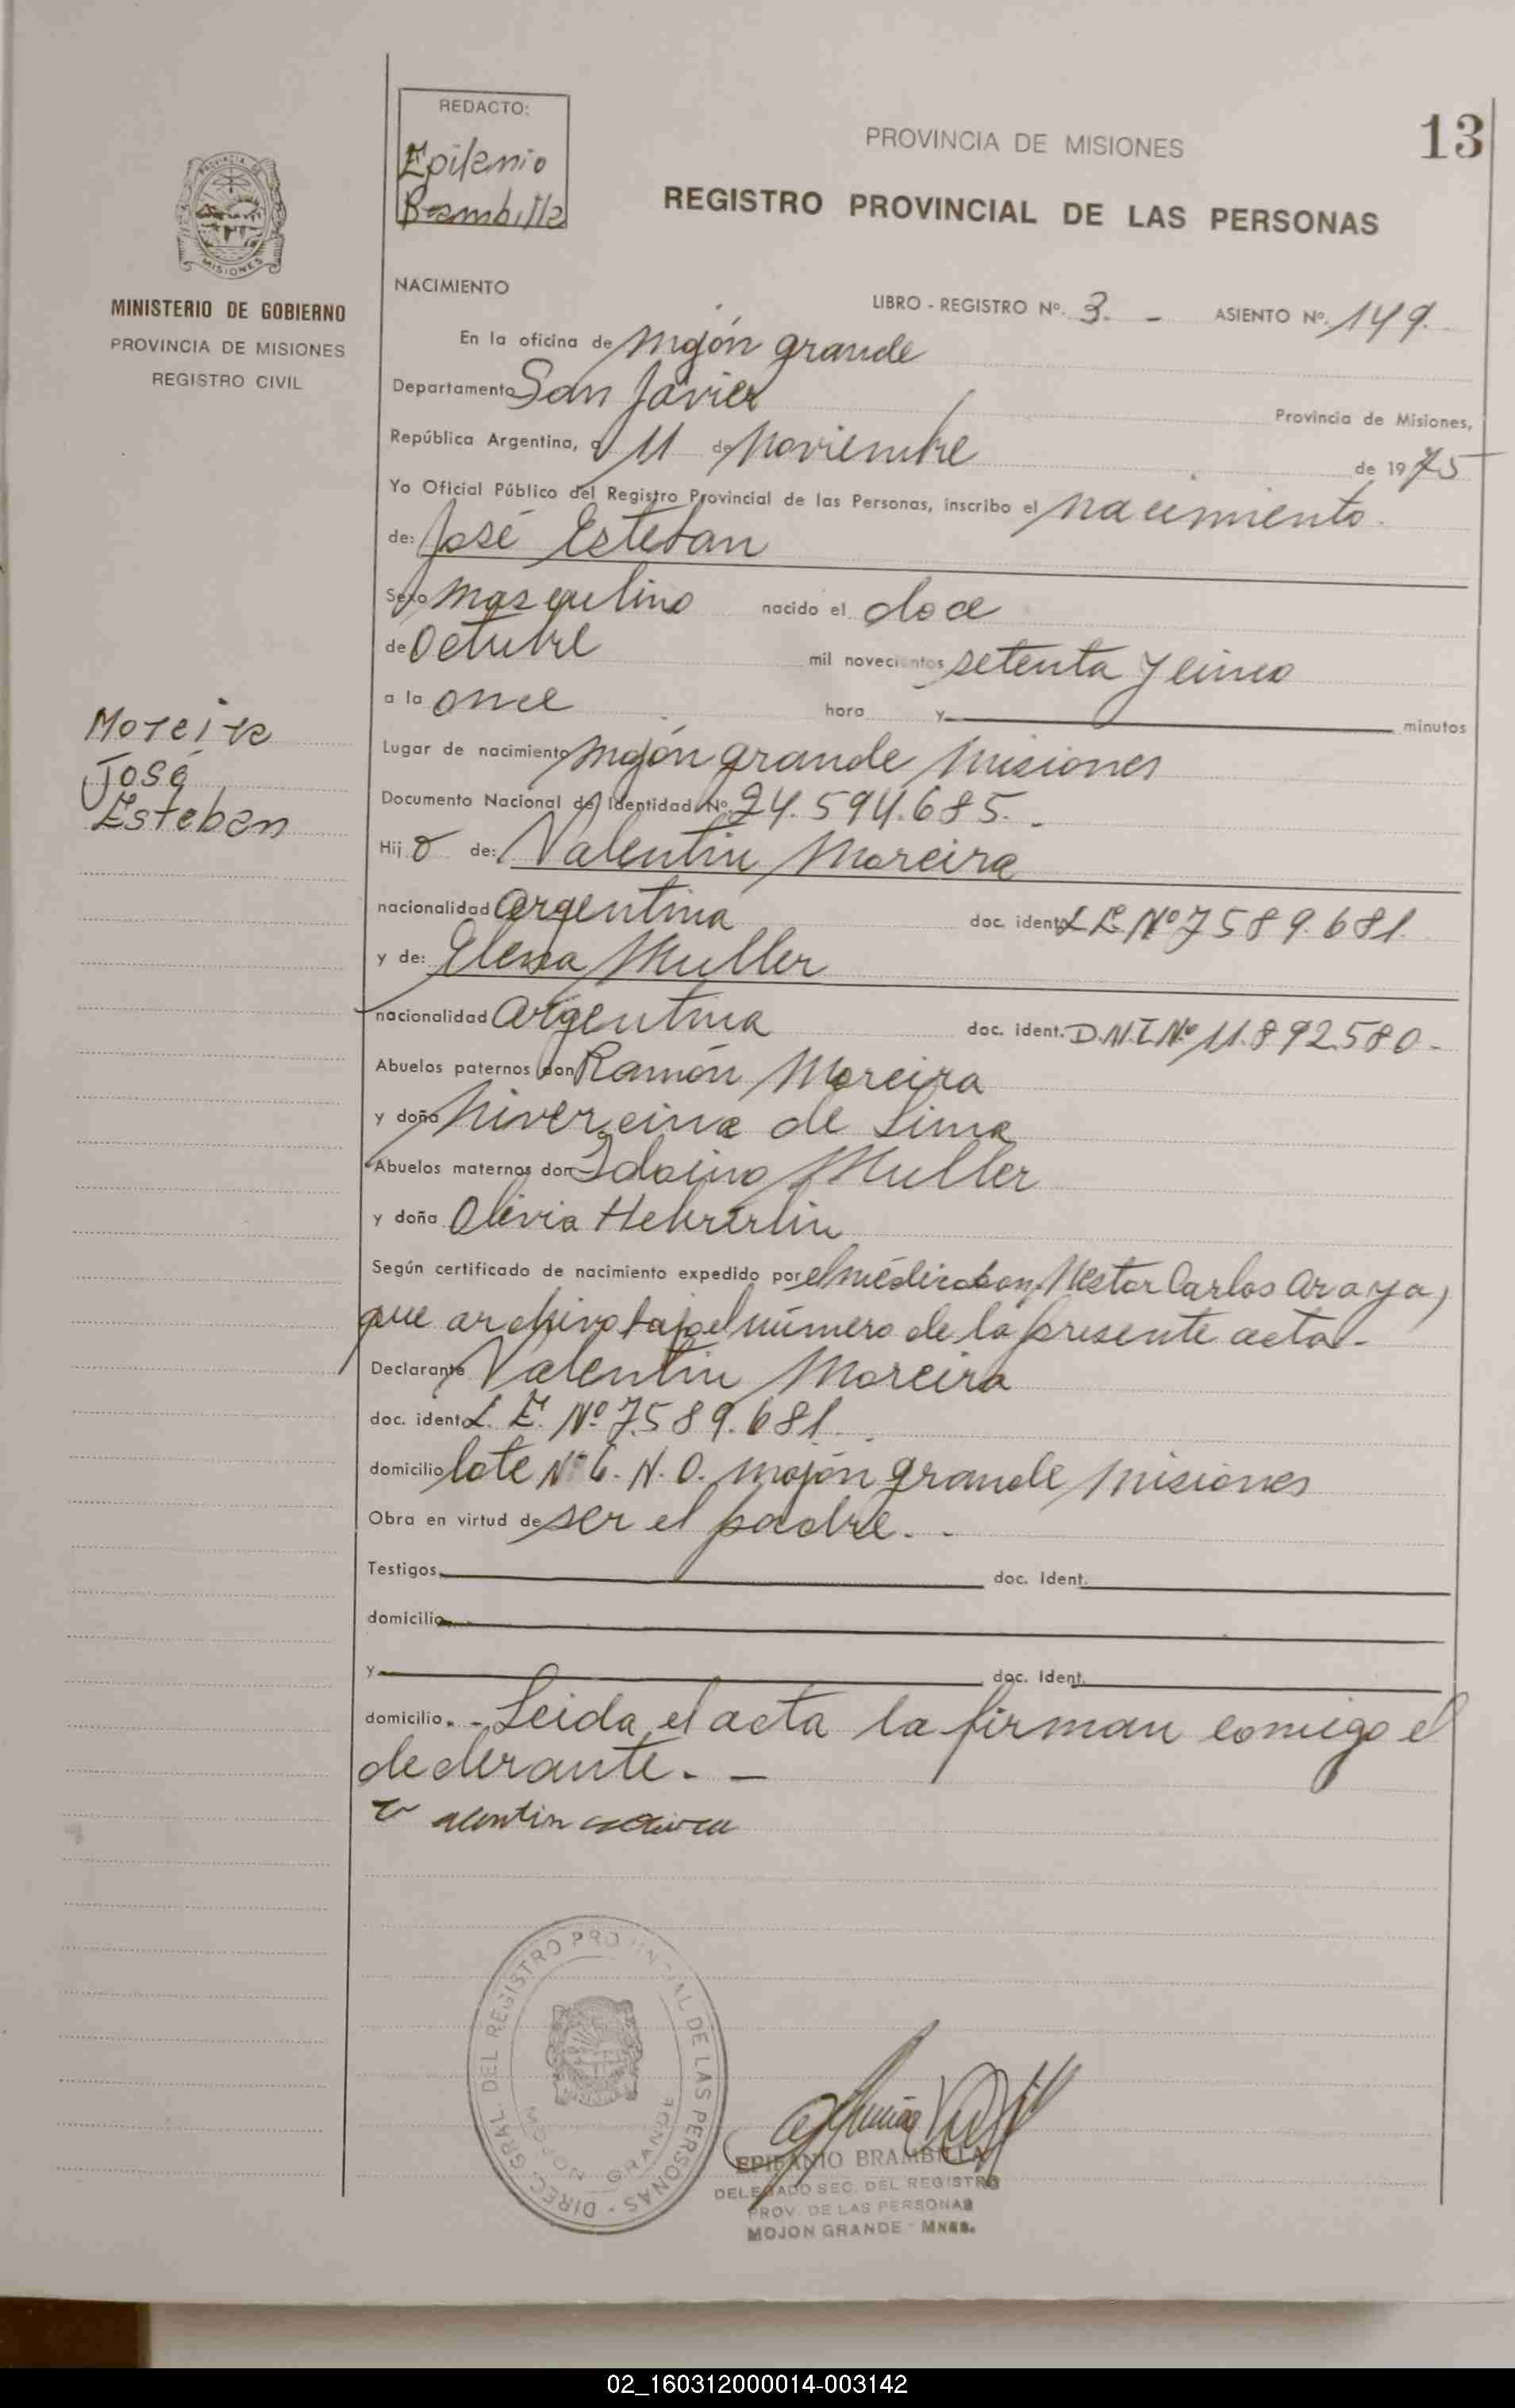 REDACTO:
Epifanio
Brambilla
PROVINCIA DE MISIONES
13
REGISTRO PROVINCIAL DE LAS PERSONAS
PROVINCIA DE
MISIONES
MINISTERIO DE GOBIERNO
PROVINCIA DE MISIONES
REGISTRO CIVIL
Moreira
José
Esteban
NACIMIENTO
LIBRO - REGISTRO Nº. 3. - ASIENTO Nº. 149.
En la oficina de Mojón grande
Departamento San Javier Provincia de Misiones,
República Argentina, a 11 de Noviembre de 1975
Yo Oficial Público del Registro Provincial de las Personas, inscribo el nacimiento.
de: José Esteban
Sexo masculino nacido el doce
de Octubre mil novecientos setenta y cinco
a la once hora y minutos
Lugar de nacimiento Mojón grande Misiones
Documento Nacional de Identidad Nº. 24.594.685. -
Hij o de: Valentin Moreira
nacionalidad argentina doc. ident. L.E. Nº 7589.681.
y de: Elena Muller
nacionalidad argentina doc. ident. D.N.I. Nº 11.892.580 -
Abuelos paternos don Ramón Moreira
y doña de Lima
Abuelos maternos don Muller
y doña Olivia
Según certificado de nacimiento expedido por el médico don Nestor Carlos Araya,
que archivo bajo el número de la presente acta. -
Declarante Valentin Moreira
doc. ident. L. E. Nº 7.589.681.
domicilio lote Nº 6. N. O. mojón grande Misiones
Obra en virtud de ser el padre. -
Testigos doc. Ident.
domicilio
y doc. Ident.
domicilio. - Leida el acta la firman comigo el
declerante. -
Valentin
DIREC. GRAL. DEL REGISTRO PROVINCIAL DE LAS PERSONAS -
MOJON GRANDE
EPIFANIO BRAMBILLA
DELEGADO SEC. DEL REGISTRO
PROV. DE LAS PERSONAS
MOJON GRANDE - MNES.
02_160312000014-003142